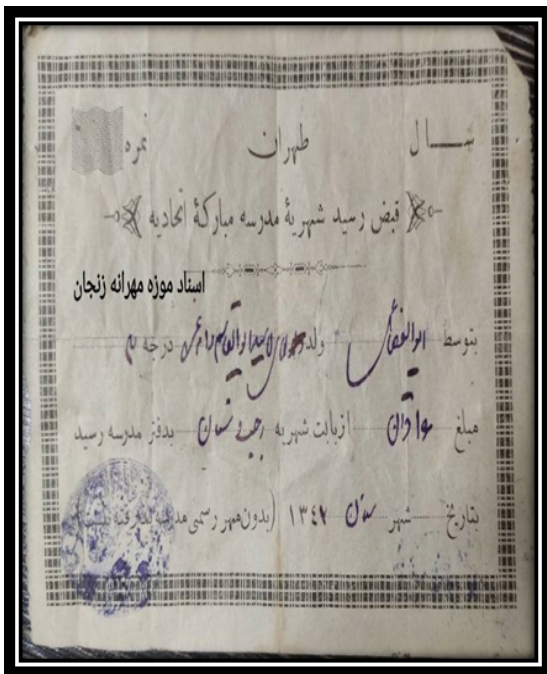 سال طهران نمره
قبض رسید شهریهٔ مدرسه مبارکهٔ اتحادیه
اسناد موزه مهرانه زنجان
بتوسط ابوالفضل ولد درجه
مبلغ از بابت شهریه رجب و شعبان بدفتر مدرسه رسید
بتاریخ شهر ۱۳۴۲ (بدون مهر رسمی مدرسه